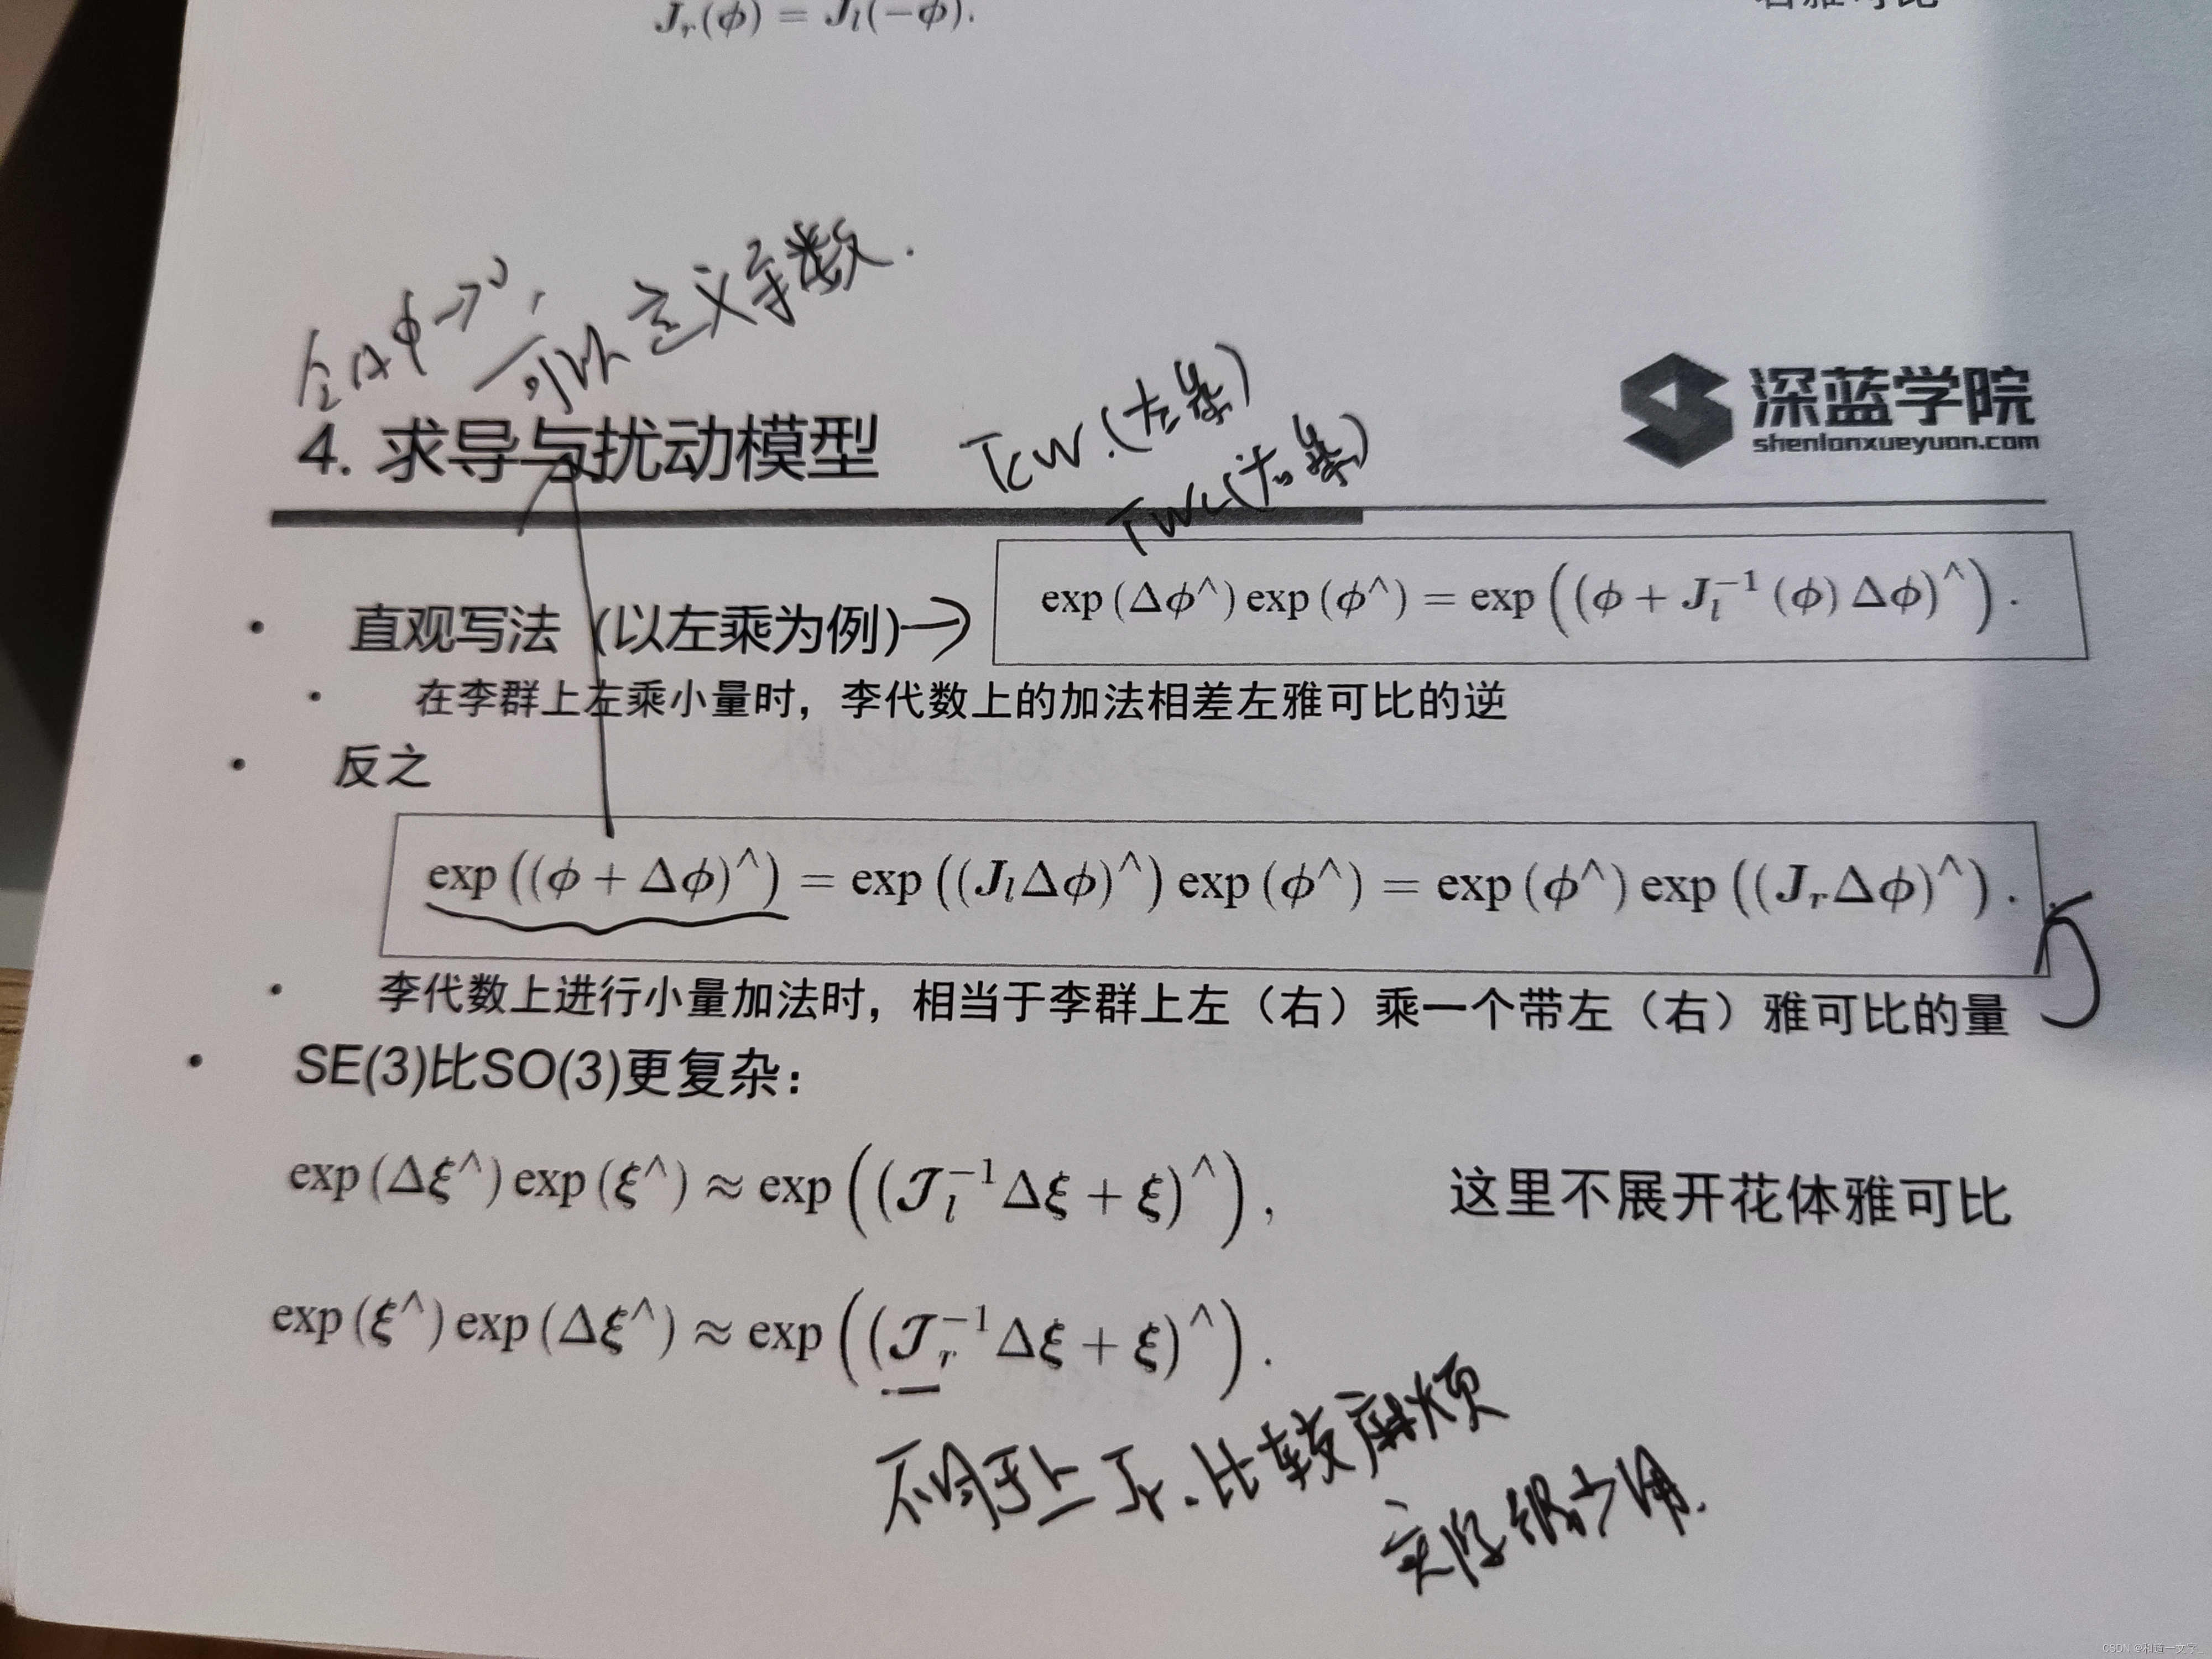 J_r(ϕ) = J_l(−ϕ).
右雅可比
令Δϕ→0,
可以定义导数.
4. 求导与扰动模型
TCW.(左乘)
TWC(右乘)
深蓝学院
shenlanxueyuan.com
• 直观写法（以左乘为例)→ exp (Δϕ^) exp (ϕ^) = exp ((ϕ + J_l^{−1} (ϕ) Δϕ)^) .
• 在李群上左乘小量时，李代数上的加法相差左雅可比的逆
• 反之
exp ((ϕ + Δϕ)^) = exp ((J_l Δϕ)^) exp (ϕ^) = exp (ϕ^) exp ((J_r Δϕ)^) .
• 李代数上进行小量加法时，相当于李群上左（右）乘一个带左（右）雅可比的量
• SE(3)比SO(3)更复杂：
exp (Δξ^) exp (ξ^) ≈ exp ((𝒥_l^{−1} Δξ + ξ)^) , 这里不展开花体雅可比
exp (ξ^) exp (Δξ^) ≈ exp ((𝒥_r^{−1} Δξ + ξ)^) .
不同于上 Jr. 比较麻烦
实际很少用.
CSDN @和道一文字